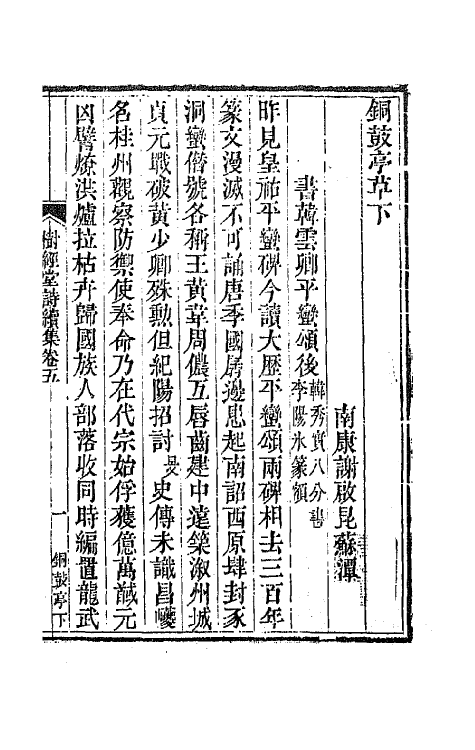 銅鼓亭草下
南康謝啟昆蘇潭
書韓雲卿平蠻頌後韓秀實八分書李陽冰篆額
昨見皇祐平蠻碑今讀大歷平蠻頌兩碑相去三百年
篆文漫滅不可誦唐季國居邊患起南詔西原肆封豕
洞蠻僭號各稱王黃韋周儂互唇齒建中遠築溆州城
貞元戰破黃少卿殊勳但紀陽招討旻史傳未識昌巙
名桂州觀察防禦使奉命乃在代宗始俘獲億萬馘元
凶臂燎洪爐拉枯卉歸國族人部落收同時編置龍武
樹經堂詩續集卷五
一
銅鼓亭下